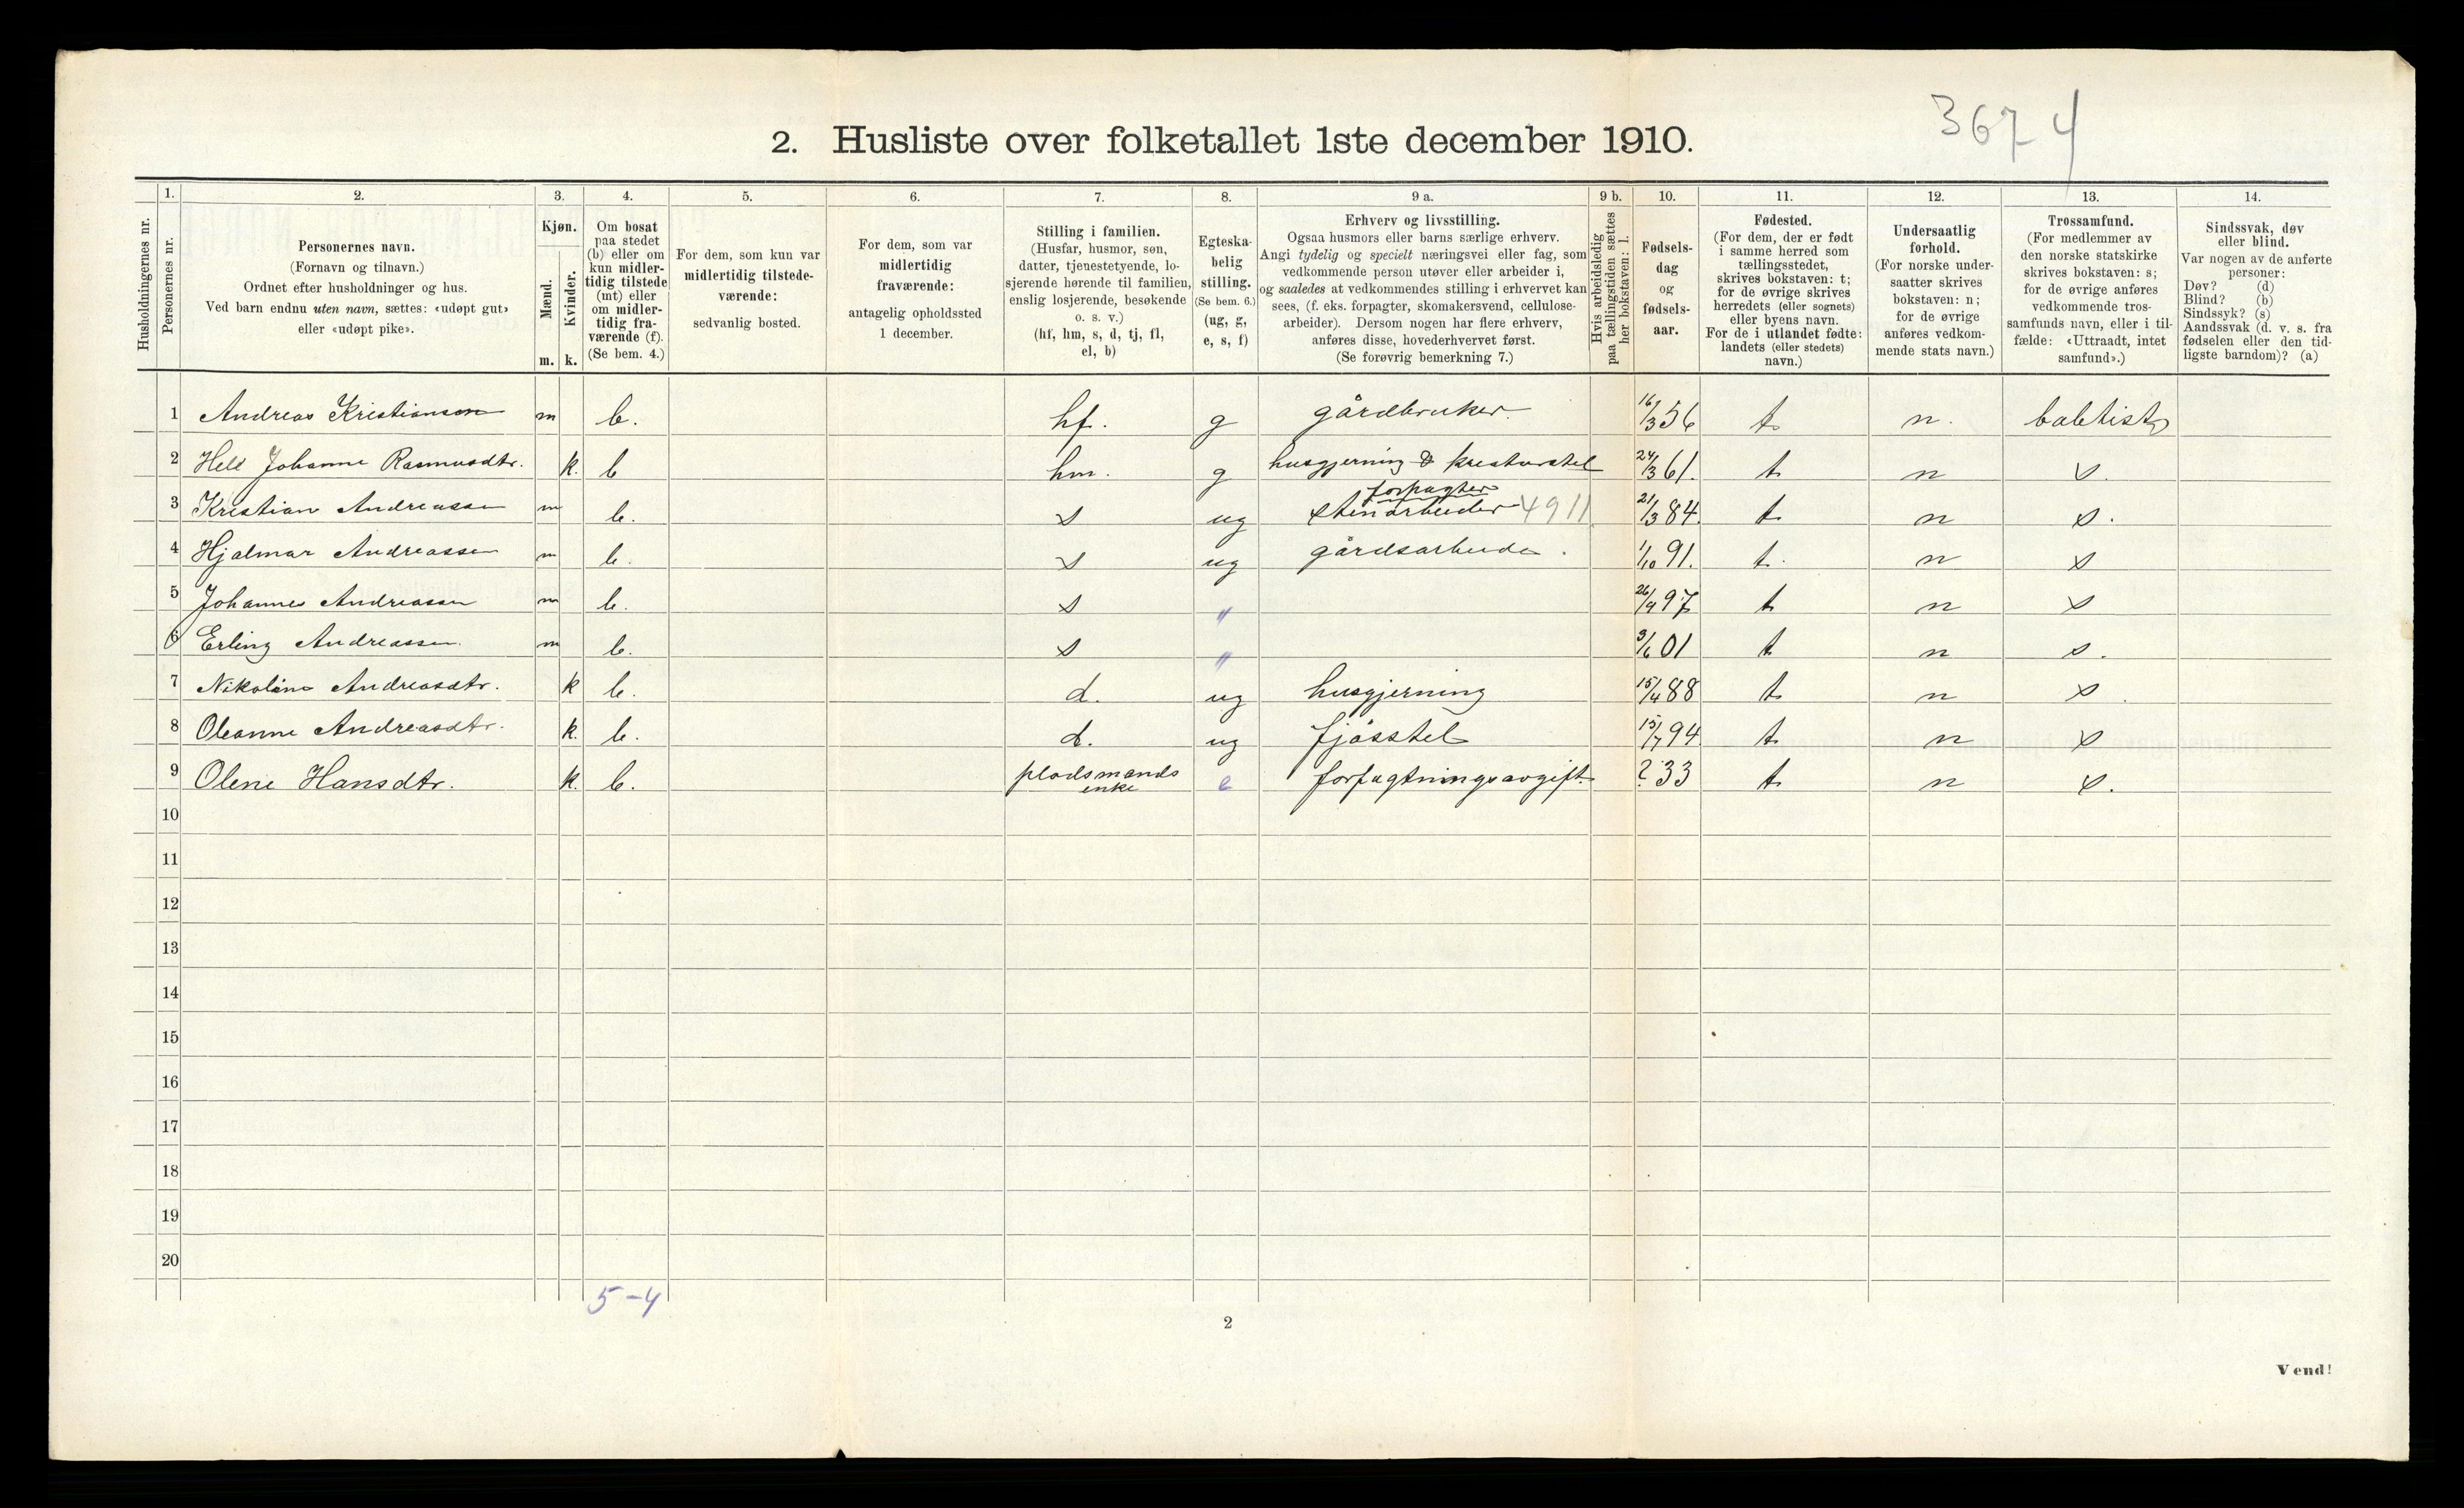 3674
2. Husliste over folketallet 1ste december 1910.
Husholdningernes nr.
1.
Personernes nr.
2.
Personernes navn.
(Fornavn og tilnavn.)
Ordnet efter husholdninger og hus.
Ved barn endnu uten navn, sættes: «udøpt gut»
eller «udøpt pike».
3.
Kjøn.
Mænd.
Kvinder.
m. k.
4.
Om bosat
paa stedet
(b) eller om
kun midler-
tidig tilstede
(mt) eller
om midler-
tidig fra-
værende (f).
(Se bem. 4.)
5.
For dem, som kun var
midlertidig tilstede-
værende:
sedvanlig bosted.
6.
For dem, som var
midlertidig
fraværende:
antagelig opholdssted
1 december.
7.
Stilling i familien.
(Husfar, husmor, søn,
datter, tjenestetyende, lo-
sjerende hørende til familien,
enslig losjerende, besøkende
o. s. v.)
(hf, hm, s, d, tj, fl,
el, b)
8.
Egteska-
belig
stilling.
(Se bem. 6.)
(ug, g,
e, s, f)
9 a.
Erhverv og livsstilling.
Ogsaa husmors eller barns særlige erhverv.
Angi tydelig og specielt næringsvei eller fag, som
vedkommende person utøver eller arbeider i,
og saaledes at vedkommendes stilling i erhvervet kan
sees, (f. eks. forpagter, skomakersvend, cellulose-
arbeider). Dersom nogen har flere erhverv,
anføres disse, hovederhvervet først.
(Se forøvrig bemerkning 7.)
9 b.
Hvis arbeidsledig
paa tællingstiden sættes
her bokstaven: l.
10.
Fødsels-
dag
og
fødsels-
aar.
11.
Fødested.
(For dem, der er født
i samme herred som
tællingsstedet,
skrives bokstaven: t;
for de øvrige skrives
herredets (eller sognets)
eller byens navn.
For de i utlandet fødte:
landets (eller stedets)
navn.)
12.
Undersaatlig
forhold.
(For norske under-
saatter skrives
bokstaven: n;
for de øvrige
anføres vedkom-
mende stats navn.)
13.
Trossamfund.
(For medlemmer av
den norske statskirke
skrives bokstaven: s;
for de øvrige anføres
vedkommende tros-
samfunds navn, eller i til-
fælde: «Uttraadt, intet
samfund».)
14.
Sindssvak, døv
eller blind.
Var nogen av de anførte
personer:
Døv? (d)
Blind? (b)
Sindssyk? (s)
Aandssvak (d. v. s. fra
fødselen eller den tid-
ligste barndom)? (a)
1 Andreas Kristianson m b. hf. g gårdbruker 16/3 56 t n. babtist
2 Hell Johanne Rasmusdtr. k. b hm. g husgjerning & kreaturstel 24/3 61. t n s.
forpagter
3 Kristian Andreassen m b. s ug stenarbeider 4911 21/3 84. t n s.
4 Hjalmar Andreassen m b. s ug gårdsarbeide. 1/10 91. t. n s
5 Johannes Andreassen m b. s " 26/9 97 t n s
6 Erling Andreassen m b. s " 3/6 01 t n s.
7 Nikoline Andreasdtr. k b. d. ug husgjerning 15/4 88 t n s
8 Oleanne Andreasdtr. k. b. d. ug fjøsstel 15/7 94 t n s
9 Olene Hansdtr. k. b. pladsmands e forpagtningsavgift. ? 33 t n s.
enke
10
11
12
13
14
15
16
17
18
19
20
5-4
2
Vend!